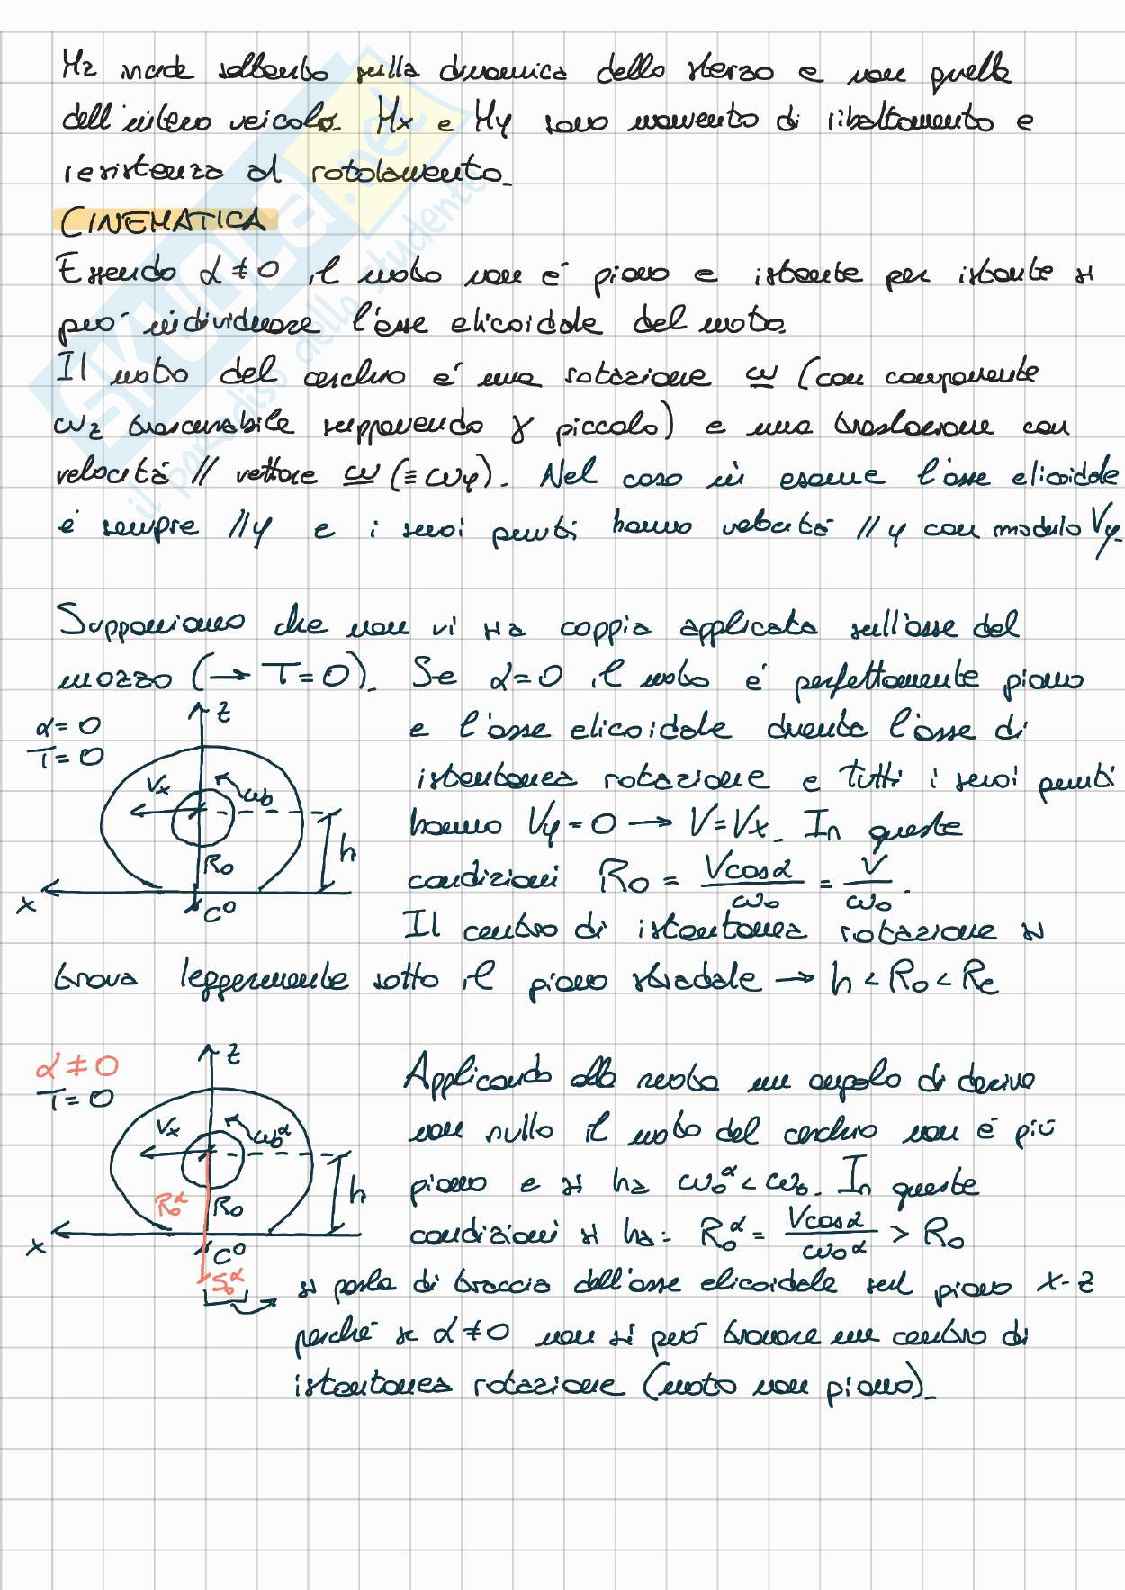 Mz incide soltanto sulla dinamica dello sterzo e non quella
dell'intero veicolo. Mx e My sono momento di ribaltamento e
resistenza al rotolamento.
CINEMATICA
Essendo α ≠ 0 il moto non è piano e istante per istante si
può individuare l'asse elicoidale del moto.
Il moto del cerchio è una rotazione ω (con componente
ωz trascurabile supponendo γ piccolo) e una traslazione con
velocità // vettore ω (≡ ωy). Nel caso in esame l'asse elicoidale
è sempre // y e i suoi punti hanno velocità // y con modulo Vy.
Supponiamo che non vi sia coppia applicata sull'asse del
mozzo (→ T=0). Se α=0 il moto è perfettamente piano
e l'asse elicoidale diventa l'asse di
istantanea rotazione e tutti i suoi punti
hanno Vy=0 → V=Vx. In queste
condizioni R₀ = Vcosα/ω₀ = V/ω₀.
Il centro di istantanea rotazione si
trova leggermente sotto il piano stradale → h < R₀ < Re
α=0
T=0
z
Vx
ω₀
h
R₀
x
C⁰
Applicando alla ruota un angolo di deriva
non nullo il moto del cerchio non è più
piano e si ha ω₀^α < ω₀. In queste
condizioni si ha: R₀^α = Vcosα/ω₀^α > R₀
α ≠ 0
T=0
z
Vx
ω₀^α
h
R₀^α
R₀
x
C⁰
S₀^α
si parla di traccia dell'asse elicoidale sul piano x-z
perché se α≠0 non si può trovare un centro di
istantanea rotazione (moto non piano).
SKUOLA.net
il paradiso dello studente